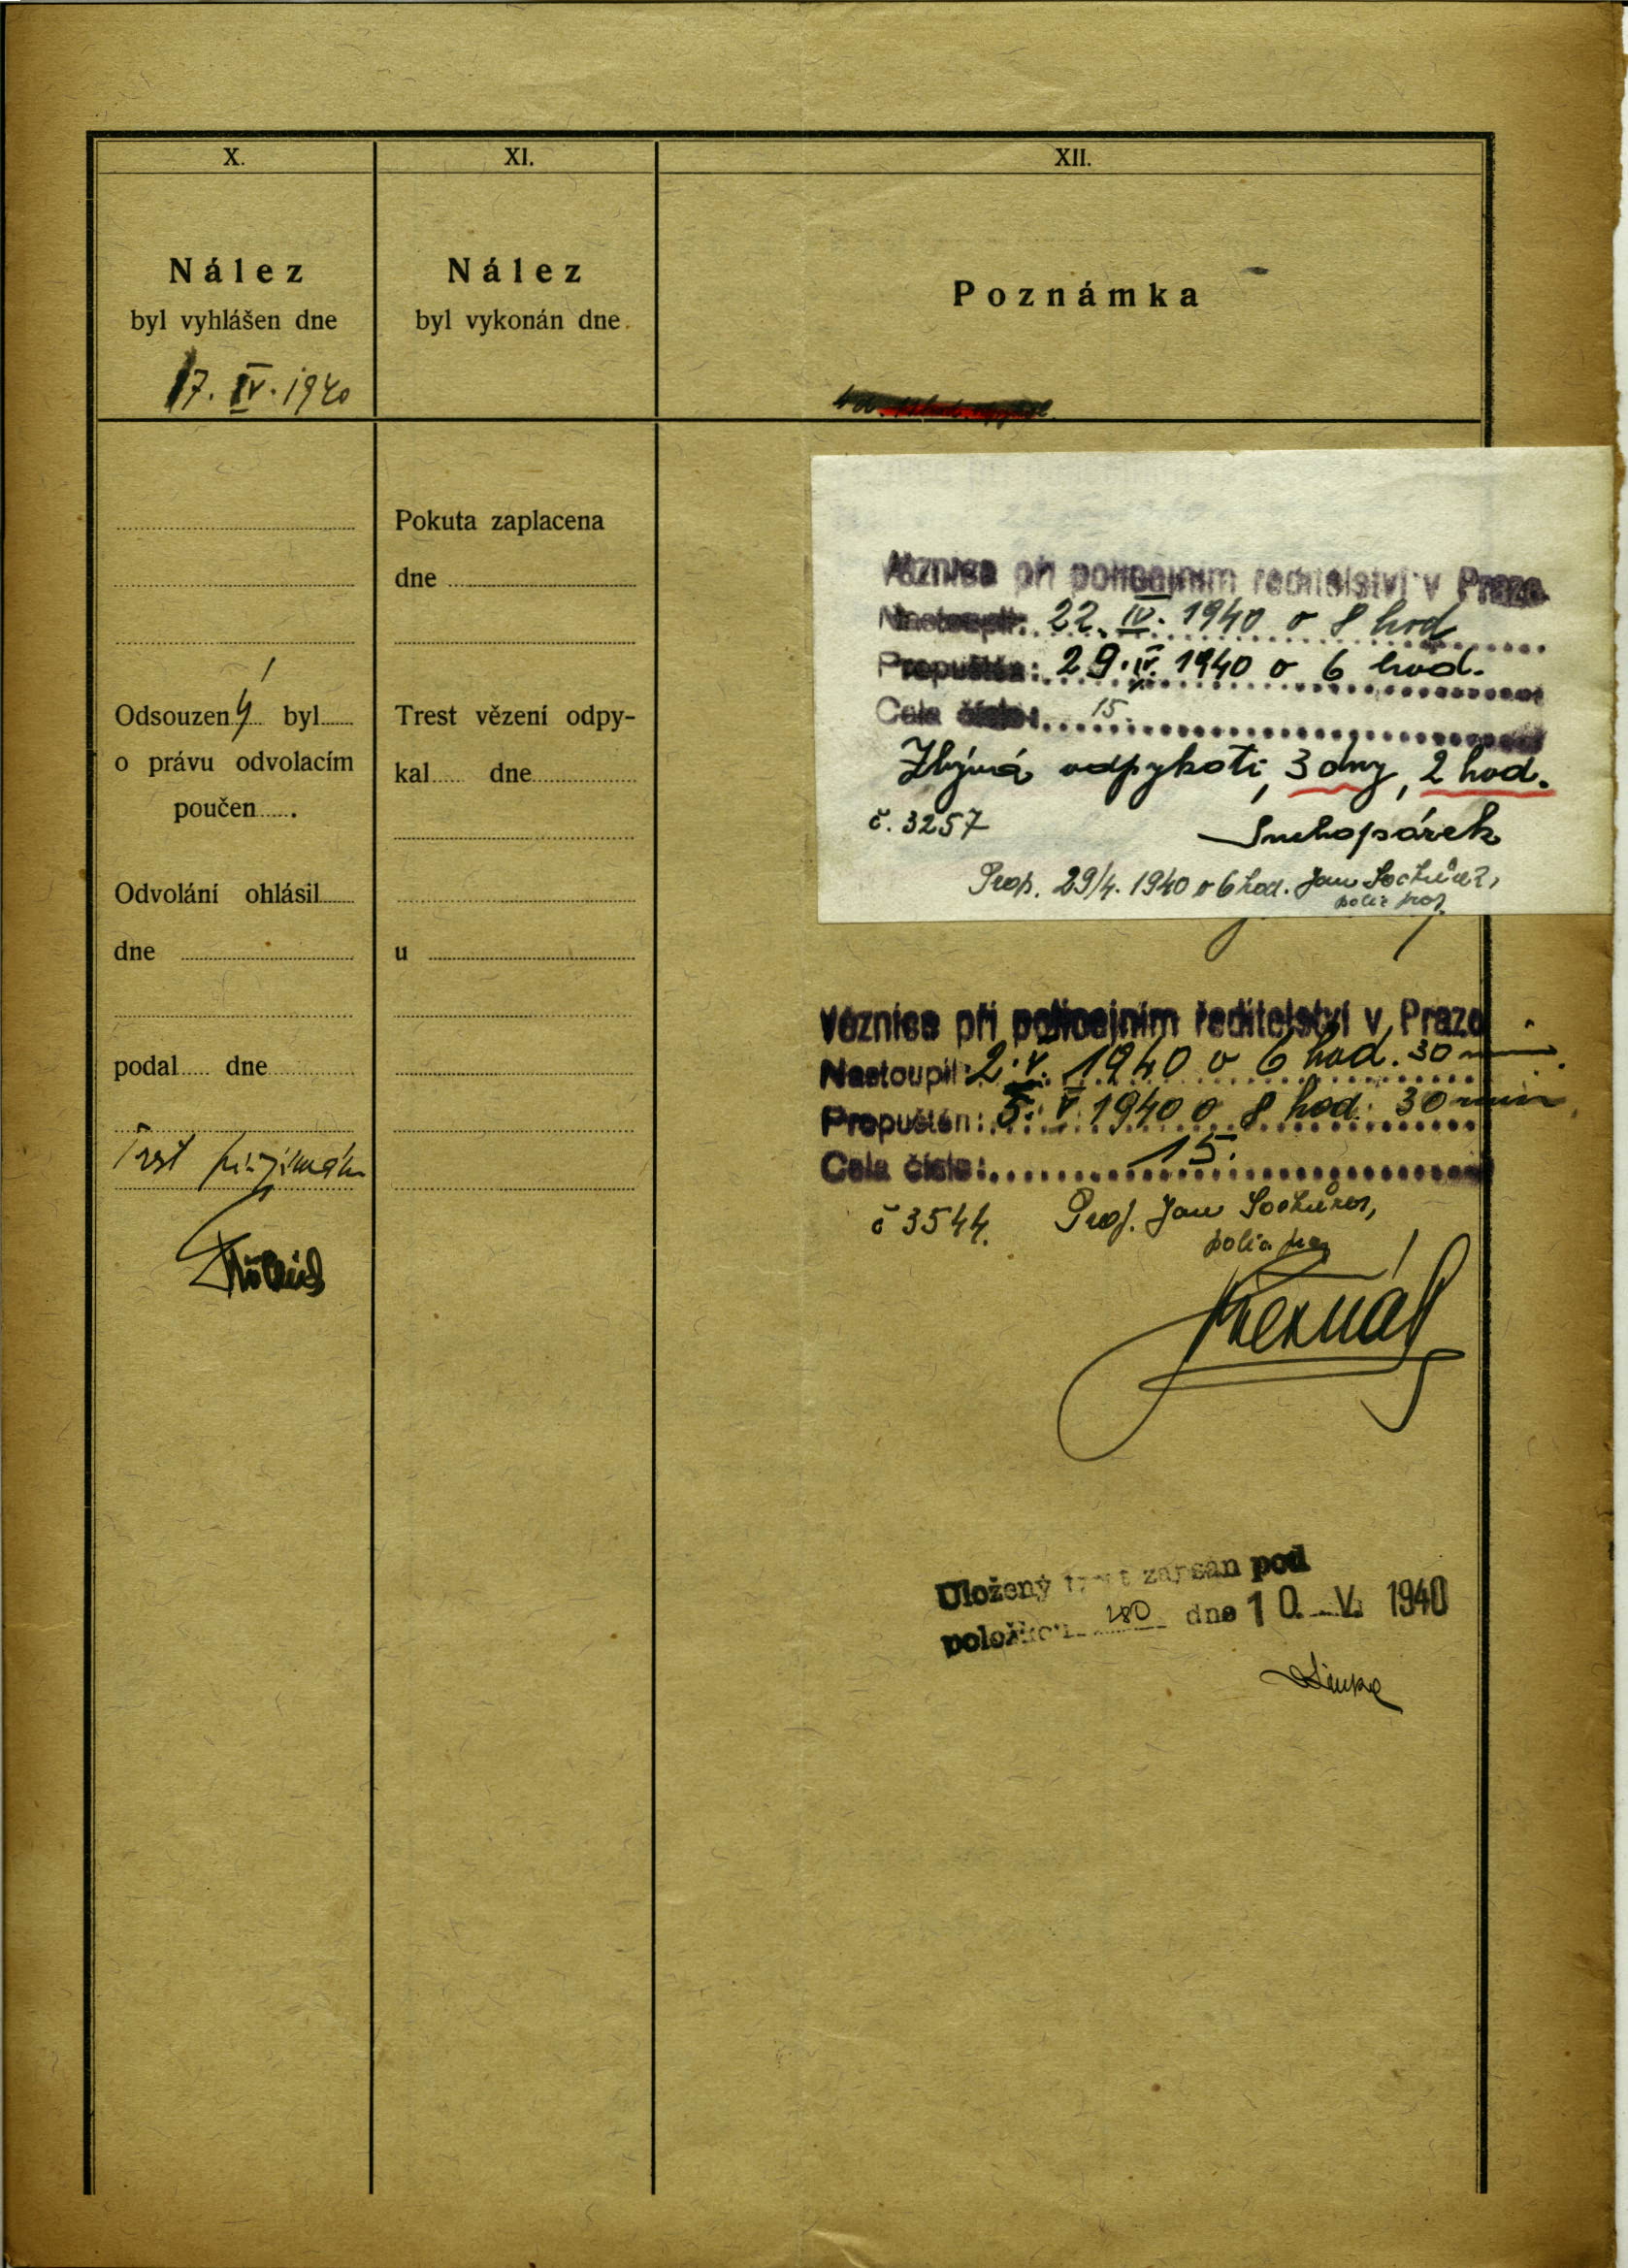 X.
Nález
byl vyhlášen dne
17. IV. 1940
Odsouzený byl
o právu odvolacím
poučen.
Odvolání ohlásil
dne
podal dne
Trest přijímám
XI.
Nález
byl vykonán dne.
Pokuta zaplacena
dne
Trest vězení odpy-
kal dne
u
XII.
Poznámka
Věznice při policejním ředitelství v Praze
Nastoupil: 22. IV. 1940 o 8 hod
Propuštěn: 29. IV. 1940 o 6 hod.
Cela číslo: 15.
Zbývá odpykati, 3 dny, 2 hod.
č. 3257
Suchopárek
Prop. 29/4. 1940 o 6 hod. Jan
Věznice při policejním ředitelství v Praze
Nastoupil: 2. V. 1940 o 6 hod. 30 min
Propuštěn: 5. V. 1940 o 8 hod. 30 min.
Cela číslo: 15.
č 3544. Prop. Jan
Uložený trest zapsán pod
položkou 280 dne 10. V. 1940